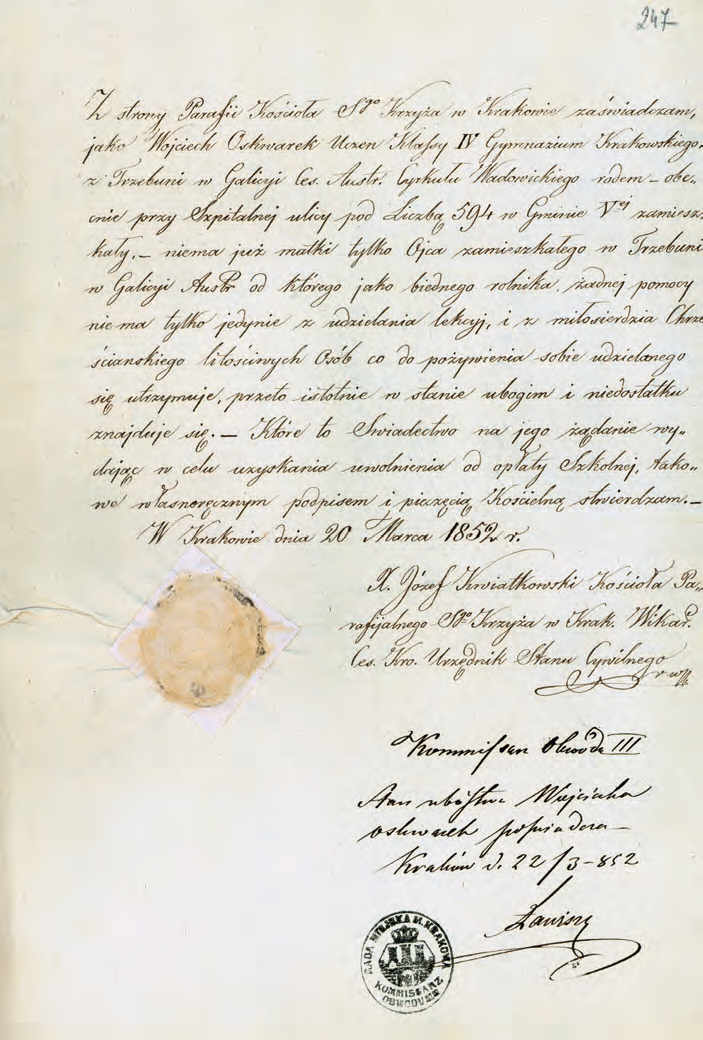 247
Z strony Parafii Kościoła Sgo Krzyża w Krakowie zaświadczam,
jako Wojciech Oskwarek Uczen Klassy IV Gymnazium Krakowskiego.
z Trzebuni w Galicyi Ces. Austr. Cyrkułu Wadowickiego rodem – obe„
cnie przy Szpitalnej ulicy pod Liczbą 594 w Gminie Vej zamiesz„
kały. – niema już matki tylko Ojca zamieszkałego w Trzebuni
w Galicyi Austr od którego jako biednego rolnika, żadnej pomocy
niema tylko jedynie z udzielania lekcyj, i z miłosierdzia Chrze
ścianskiego litościwych Osób co do pożywienia sobie udzielanego
się utrzymuje, przeto istotnie w stanie ubogim i niedostatku
znajduje się. – Które to Swiadectwo na jego żądanie wy„
dając w celu uzyskania uwolnienia od opłaty Szkolnej, tako„
we własnoręcznym podpisem i pieczęcią Kościelną stwierdzam. –
W Krakowie dnia 20 Marca 1852 r.
X. Józef Kwiatkowski Kościoła Pa„
rafijalnego Sgo Krzyża w Krak. Wikar.
Ces. Kro. Urzędnik Stanu Cywilnego
Kommissarz Obwodu III
Stan ubóstwa Wojciecha
Oskwarek poświadcza –
Kraków d. 22/3–852
RADA MIEJSKA M. KRAKOWA
KOMMISSARZ
OBWODU